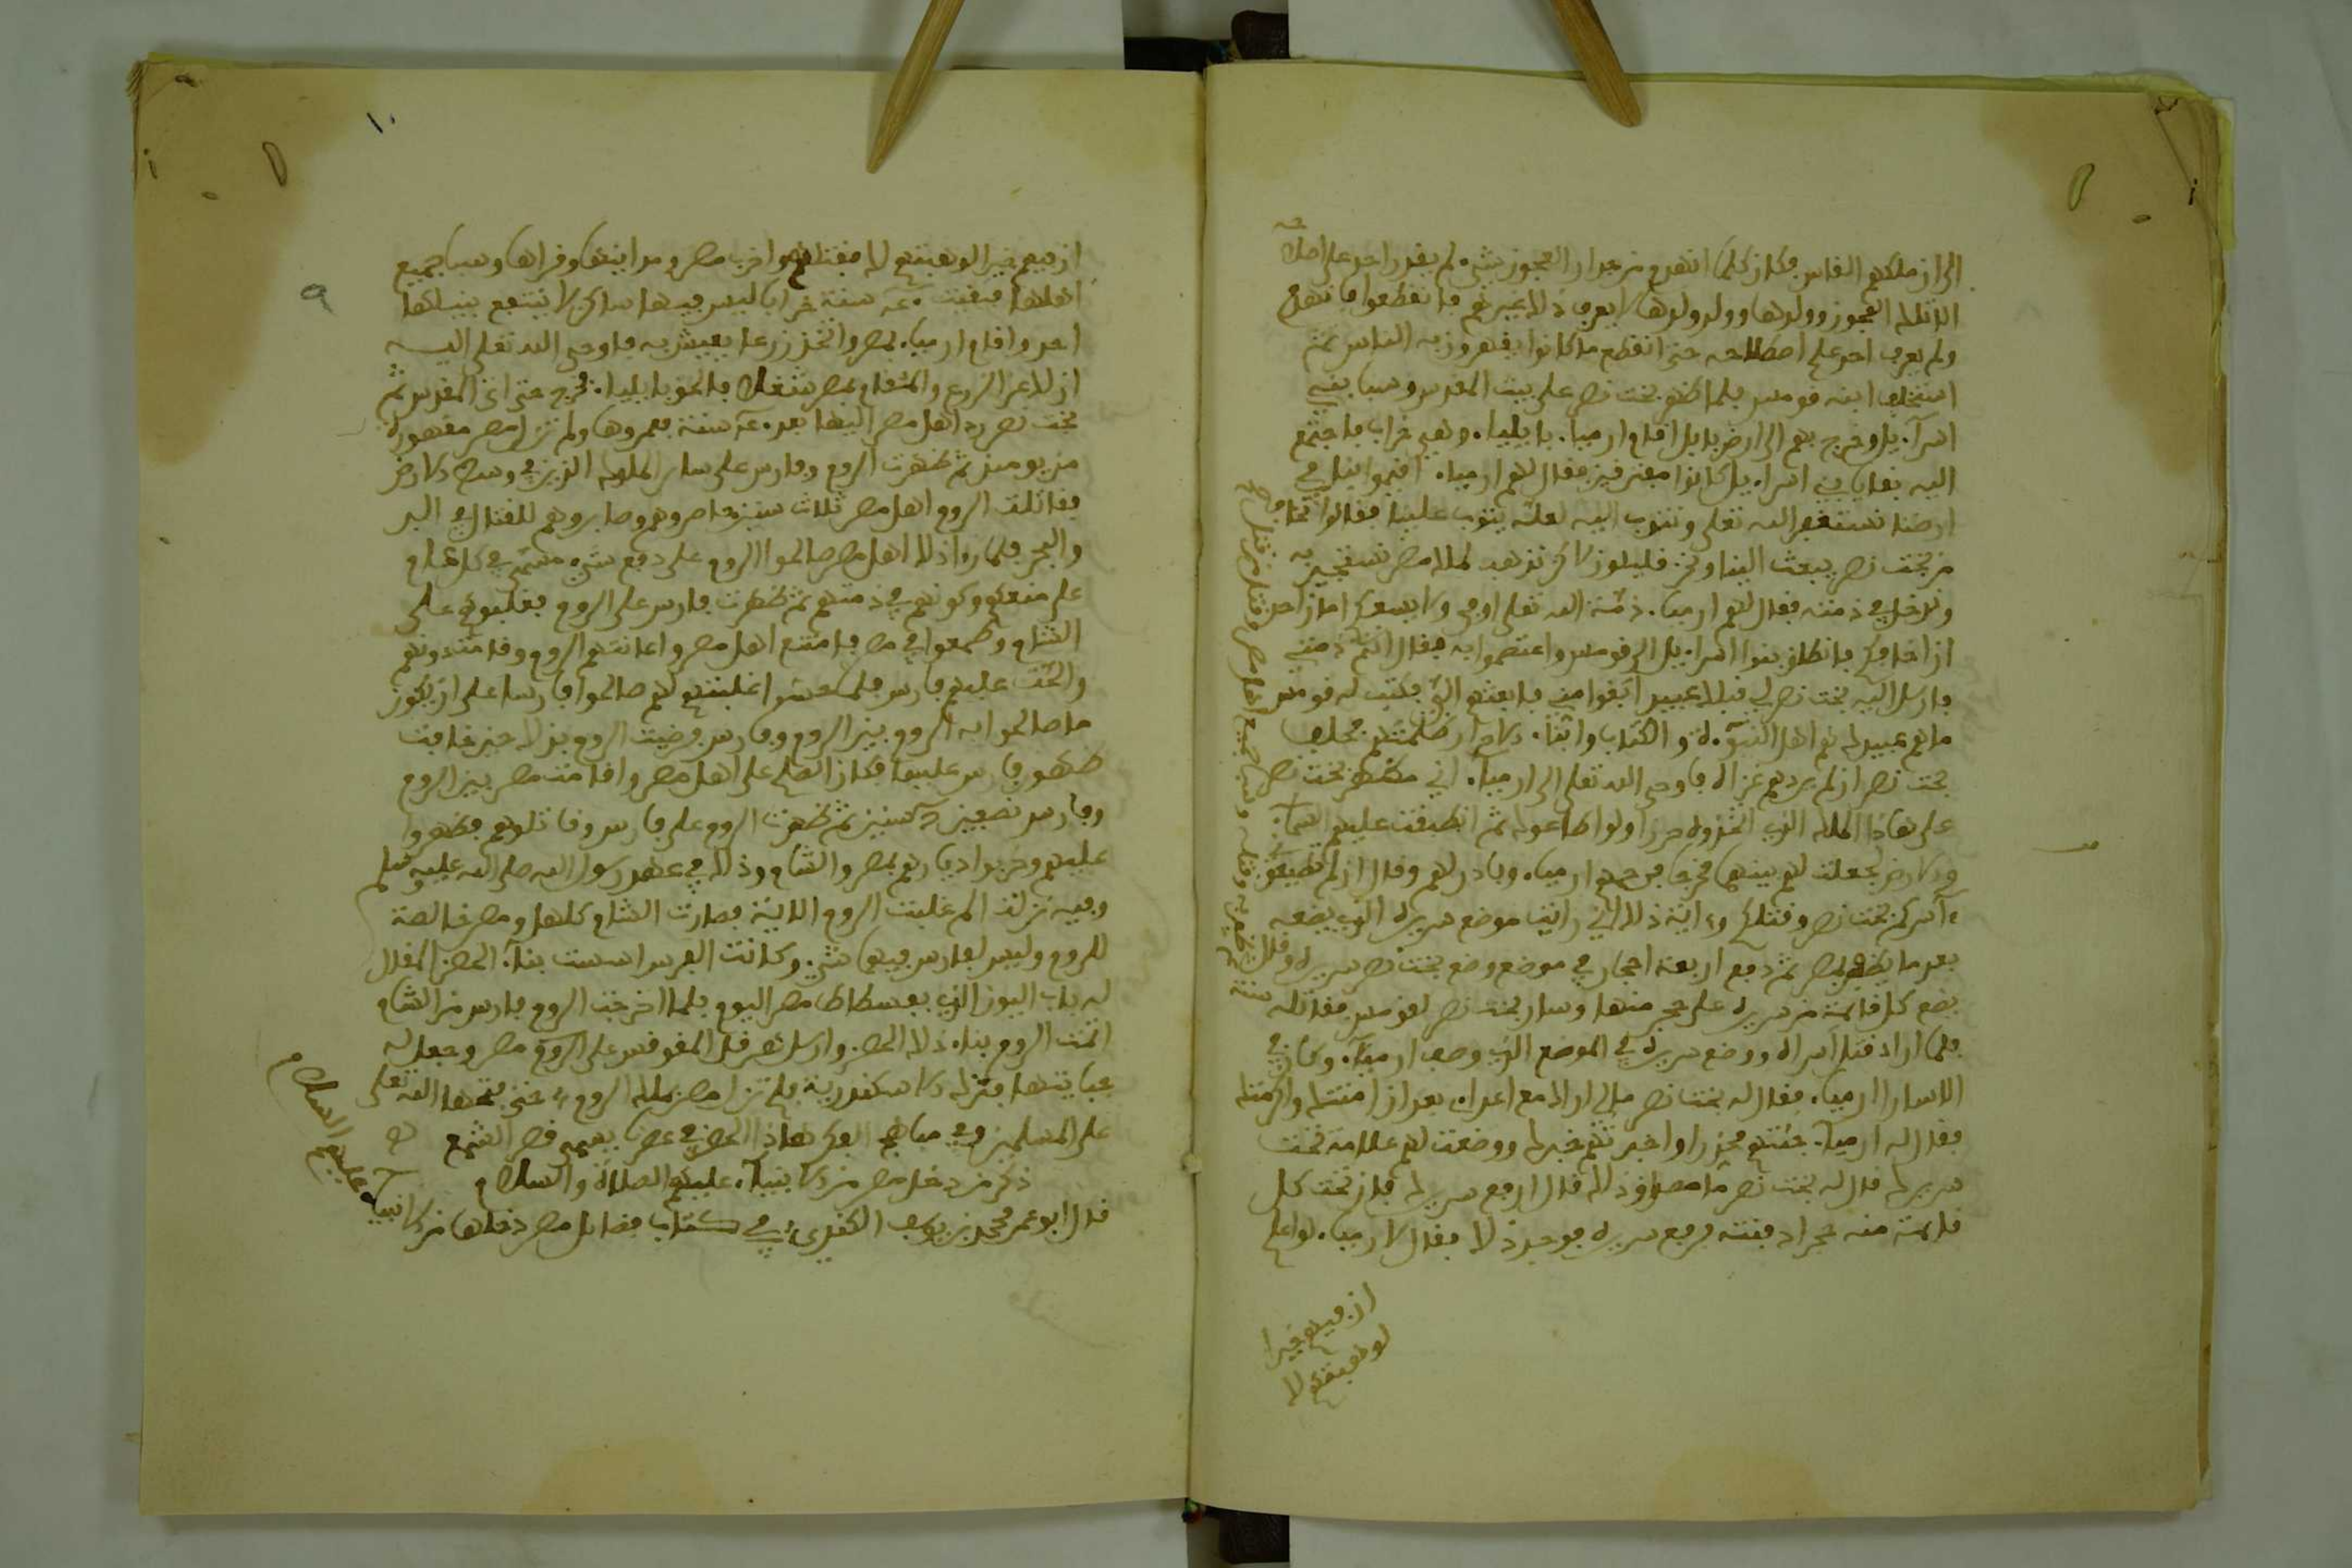 الى ان ملكهم الفاس فكان كلما انهدم من جدار العجوز شيء لم يقدر احد على اصلاحه
الا تلك العجوز وولدها وولد ولدها لا يعرف ذلك غيرهم فانقطعوا فانهدم
ولم يعرف احد على اصطلاحه حتى انقطع ما كانوا يقهرون به الناس ثم
استخلف ابنه قومس فلما ظهر بخت نصر على بيت المقدس وسبا بني
اسرآءيل وخرج بهم الى ارض بابل اقام ارمياء بايلياء وهي خراب فاجتمع
اليه بقايا بني اسراءيل كانوا مفترقين فقال لهم ارمياء اقيموا بنا في
ارضنا نستغفر الله تعلى ونتوب اليه لعله يتوب علينا فقالوا نخاف
من بخت نصر يبعث الينا ونحن قليلون ولاكن نذهب لملك مصر نستجير به
وندخل في ذمته فقال لهم ارمياء ذمة الله تعلى اوفى ولا يسعكم امان احد
ان اخافكم فانطلق بنوا اسراءيل الى قومس واعتصموا به فقال انتم في ذمتي
فارسل اليه بخت نصر لي قبلك عبيد ابقوا مني فابعثهم الي فكتب له قومس
ما هم عبيدك هم اهل النبوءة والكتاب وابناء الاحرار ظلمتهم فحلف
بخت نصر ان لم يردهم غزاه فاوحى الله تعلى الى ارمياء اني مظهر بخت نصر
على هاذا الملك الذي اتخذوه حرزا ولو اطاعوك ثم انطبقت عليهم السماء
والارض لجعلت لهم بينهما مخرجا فرحمهم ارمياء وبادر لهم وقال ان لم تطيعوني
ءاسركم بخت نصر وقتلكم وءاية ذلك اني رايت موضع سريره الذي يضعه
بعد ما يظفر بمصر ثم دفع اربعة احجار في موضع وضع بخت نصر سريره وقال
يضع كل قائمة من سريره على حجر منها وسار بخت نصر لقومس فقاتله سنة
فلما اراد قتل اسراه ووضع سريره في الموضع الذي وصف ارمياء وكان في
الاسارا ارمياء فقال له بخت نصر مالي اراك مع اعدائي بعد ان امنتك واكرمتك
فقال له ارمياء جئتهم محذرا واخبرتهم خبرك ووضعت لهم علامة تحت
سريرك قال له بخت نصر ما مصداق ذلك قال ارفع سريرك فان تحت كل
قائمة منه حجرا دفنته فرفع سريره فوجد ذلك فقال لارمياء لو اعلم
ان فيهم خيرا
لوهبتهم لك
ان فيهم خيرا لوهبتهم لك فقتلهم واخرب مصر ومداينها وقراها وسبا جميع
اهلها فبقيت سنة خرابا ليس فيها ساكن لا ينتفع بنيلها
احد واقام ارمياء بمصر واتخذ زرعا يعيش به فاوحى الله تعلى اليه
ان لك عن الزرع والمقام بمصر شغلا فالحق بايلياء فخرج حتى اتى المقدس ثم
بخت نصر رد اهل مصر اليها بعد سنة فعمروها ولم تزل مصر مقهورة
من يومئذ ثم ظهرت الروم وفارس على ساير الملوك الذين في وسط الارض
فقاتلت الروم اهل مصر ثلاث سنين يحاصروهم وصابروهم للقتال في البر
والبحر فلما رءا ذلك اهل مصر صالحوا الروم على دفع شيء مسمى في كل عام
على منعهم وكونهم في ذمتهم ثم ظهرت فارس على الروم فغلبوهم على
الشام وطمعوا في مصر فامتنع اهل مصر واعانتهم الروم وقامت دونهم
والحت عليهم فارس فلما خشوا غلبتهم لهم صالحوا فارسا على ان يكون
ما صالحوا به الروم بين الروم وفارس فرضيت الروم بذلك حين خافت
ظهور فارس عليها فكان الصلح على اهل مصر واقامت مصر بين الروم
وفارس نصفين سنين ثم ظهرت الروم على فارس وقاتلوهم فظهروا
عليهم وخربوا ديارهم بمصر والشام وذلك في عهد رسول الله صلى الله عليه وسلم
وفيه نزلت الم غلبت الروم الاية فصارت الشام كلها ومصر خالصة
للروم وليس لفارس فيها شيء وكانت الفرس اسست بناء الحصن المقال
له باب اليون الذي بفسطاط مصر اليوم فلما اخرجت الروم فارس من الشام
اتمت الروم بناء ذلك الحصن وارسل هرقل المقوقس على الروم مصر وجعل له
جبايتها فنزل الاسكندرية فلم تزل مصر بملك الروم حتى فتحها الله تعلى
على المسلمين وفي مباهج الفكر هاذا الحصن في عصرنا يسمى قصر الشمع
ذكر من دخل مصر من الانبياء عليهم الصلاة والسلام
قال ابو عمر محمد بن يوسف الكندي في كتاب فضائل مصر دخلها من الانبياء
عليهم السلام